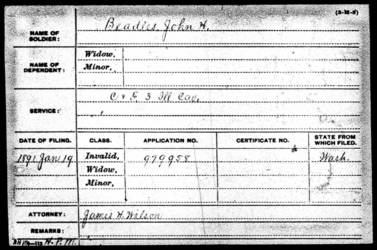 (3-22-5)
NAME OF SOLDIER: Beadles, John H.
NAME OF DEPENDENT: Widow,
Minor,
SERVICE: C & G 3 Ill Cav.
DATE OF FILING. CLASS. APPLICATION NO. CERTIFICATE NO. STATE FROM WHICH FILED.
1891 Jan 19 Invalid, 979958 Wash.
Widow,
Minor,
ATTORNEY: James H. Wilson
REMARKS: